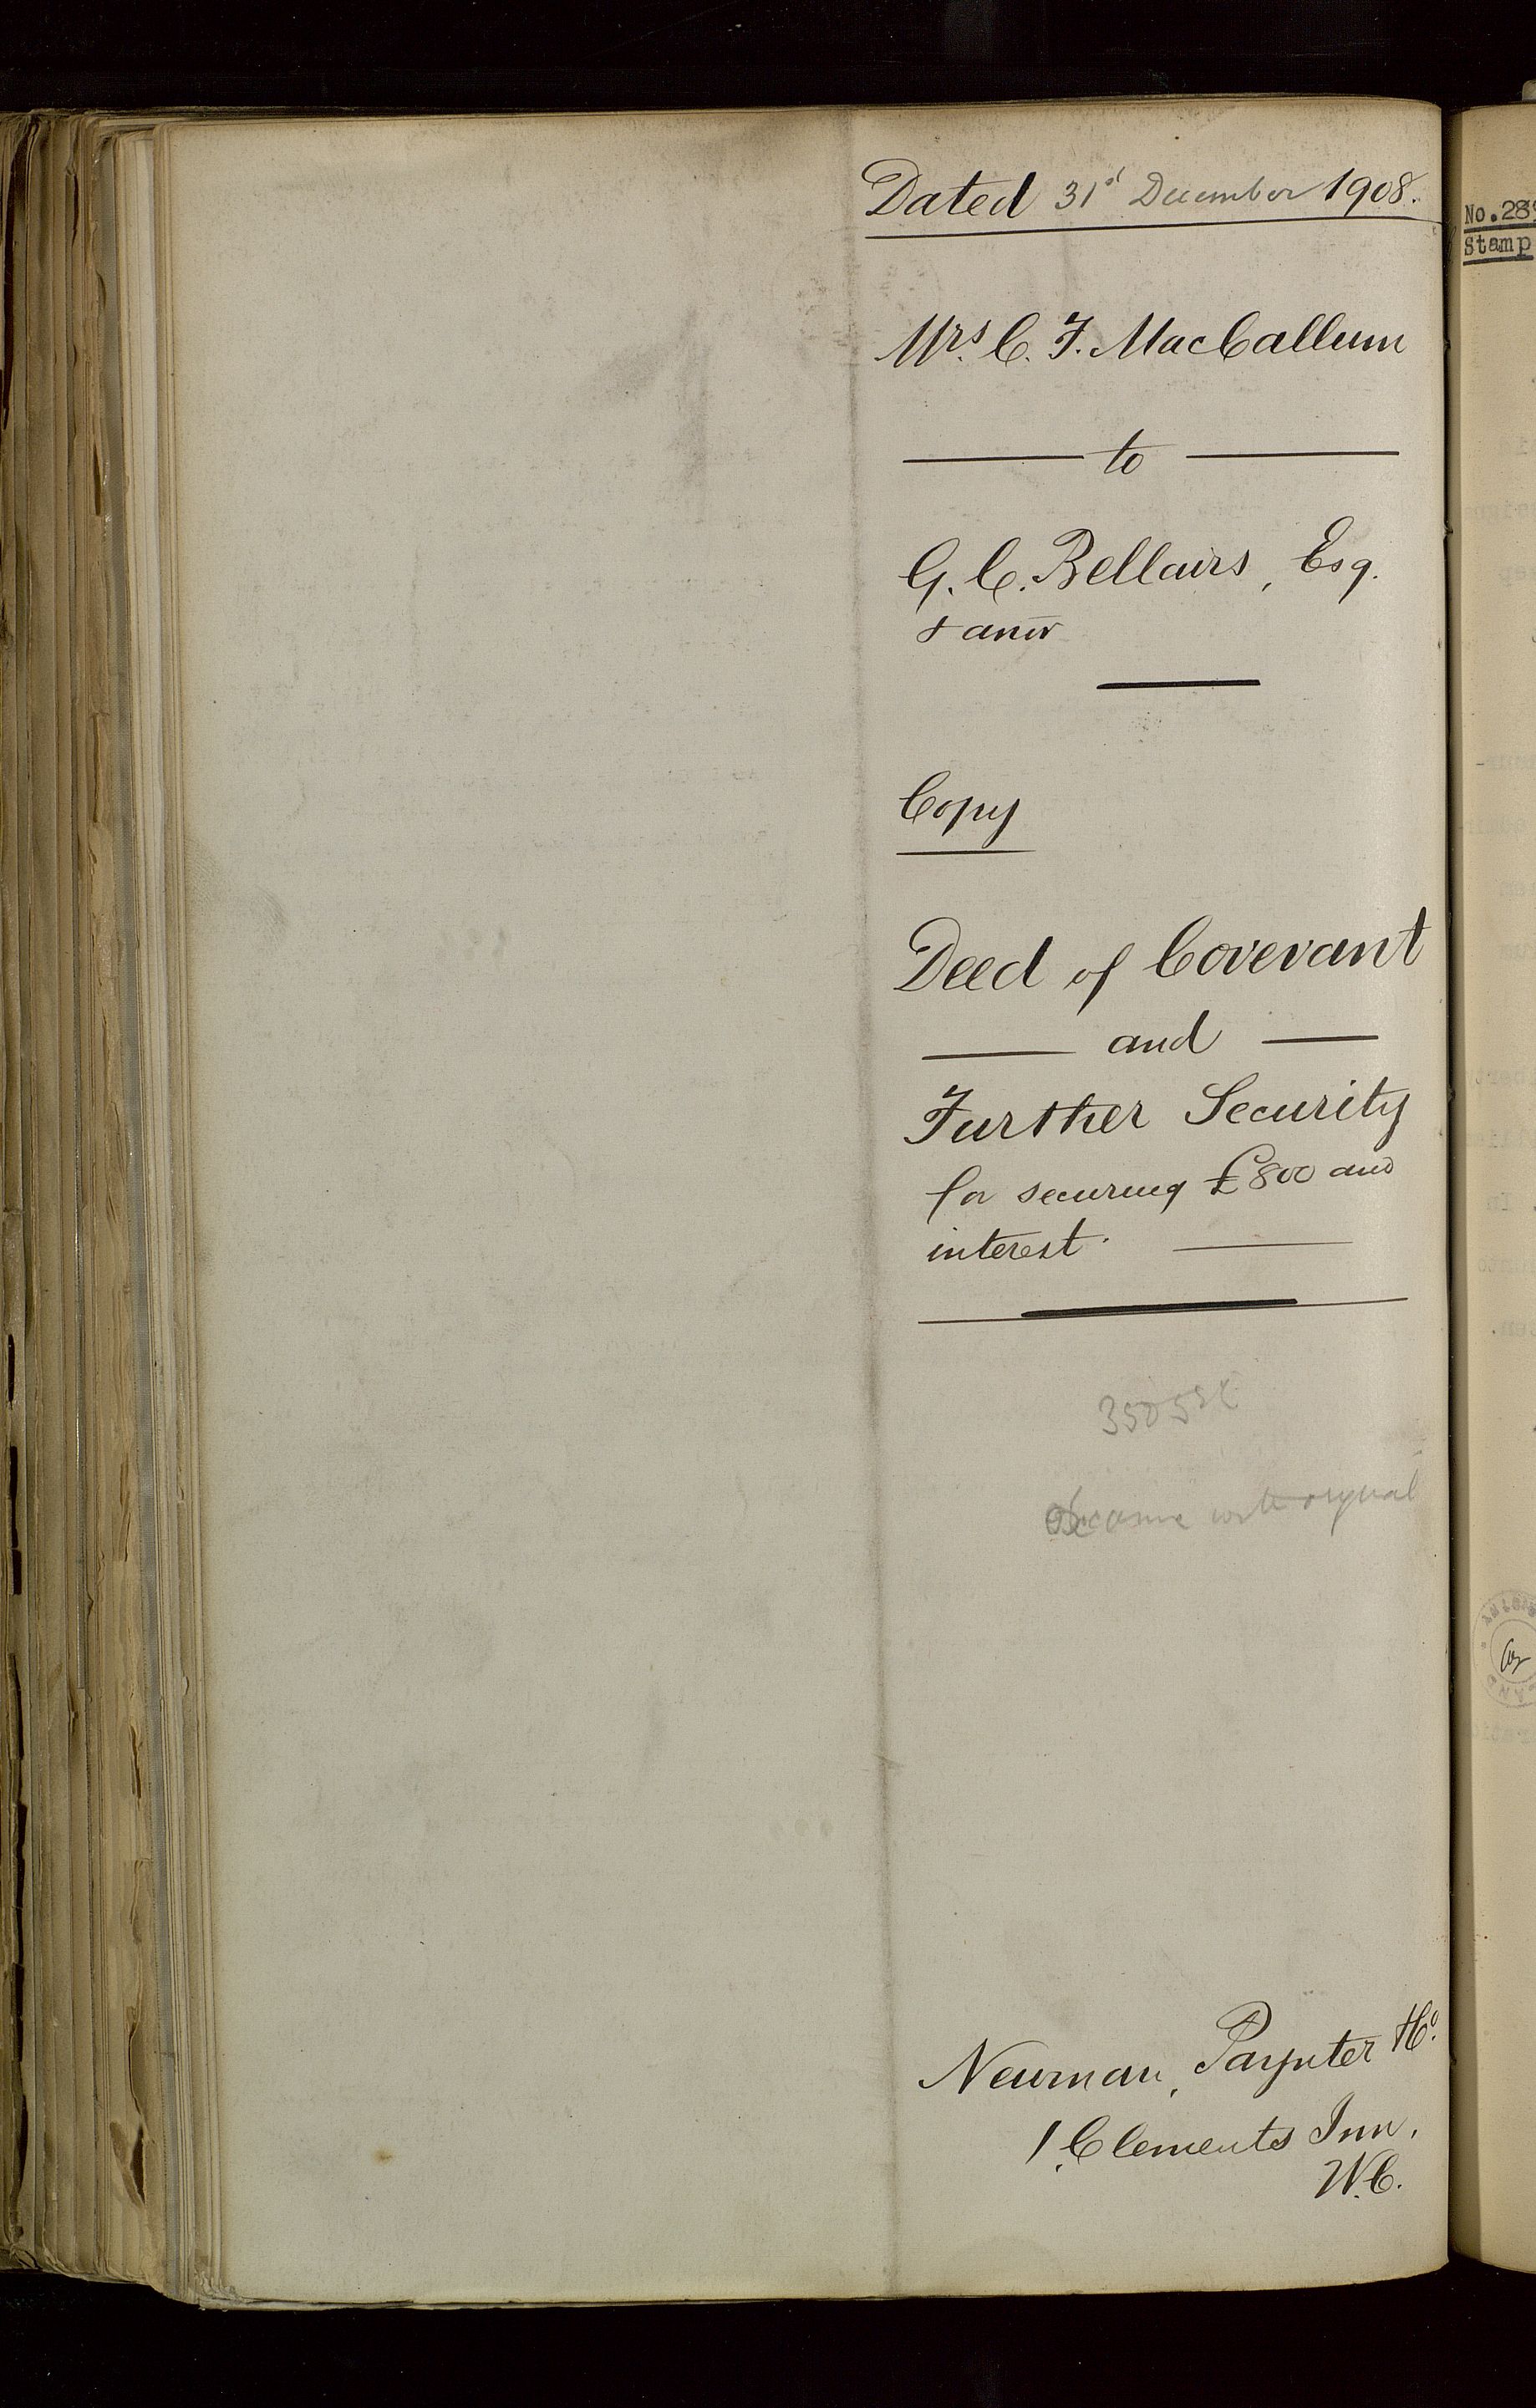 Dated 31st December 1908.
Mrs. C. F. MacCallum
to
G. C. Bellairs, Esq.
& anor
Copy
Deed of Covenant
and
Further Security
for securing £800 and
interest.
with original
Newman, Paynter & Co.
1, Clements Inn,
W.C.
No. 28
Stamp